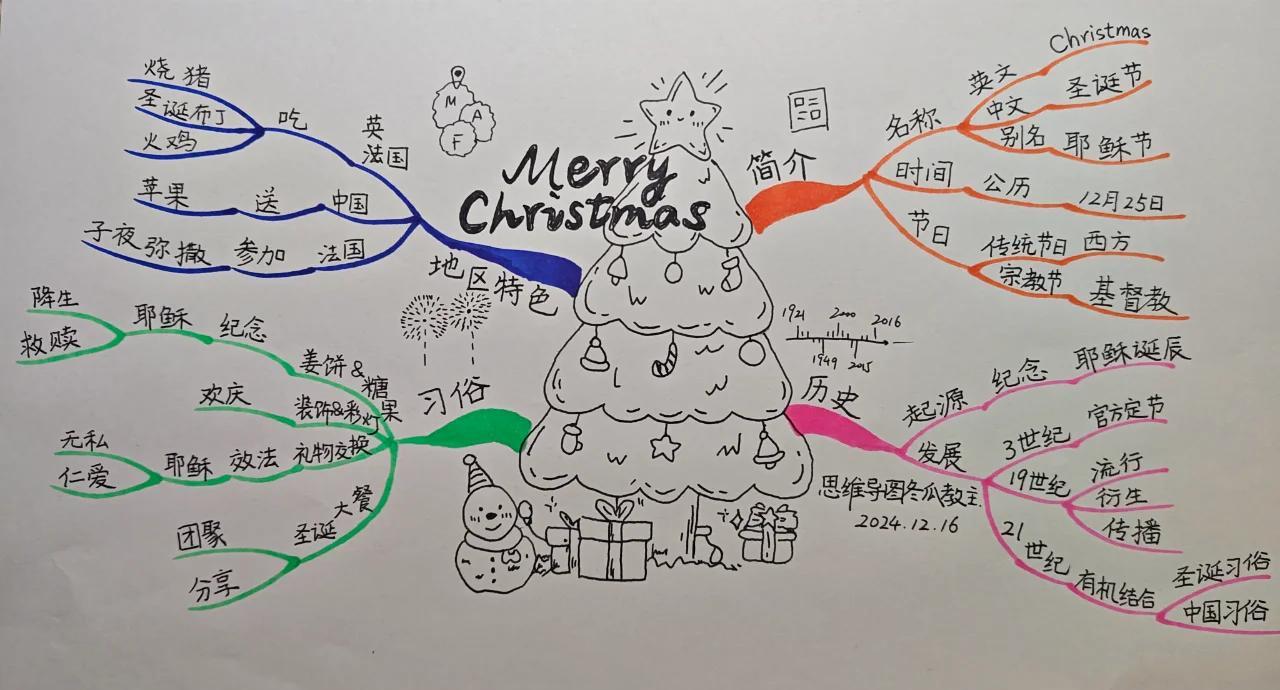 Merry
Christmas
M
A
F
简介
名称
英文
Christmas
中文
圣诞节
别名
耶稣节
时间
公历
12月25日
节日
传统节日
西方
宗教节
基督教
1921
2000
2016
1949
2015
历史
起源
纪念
耶稣诞辰
发展
3世纪
官方定节
19世纪
流行
衍生
传播
21世纪
有机结合
圣诞习俗
中国习俗
思维导图冬瓜教主
2024.12.16
习俗
姜饼&糖果
纪念
耶稣
降生
救赎
装饰&彩灯
欢庆
礼物交换
效法
耶稣
无私
仁爱
圣诞大餐
团聚
分享
地区特色
英
法国
吃
烧猪
圣诞布丁
火鸡
中国
送
苹果
法国
参加
子夜弥撒